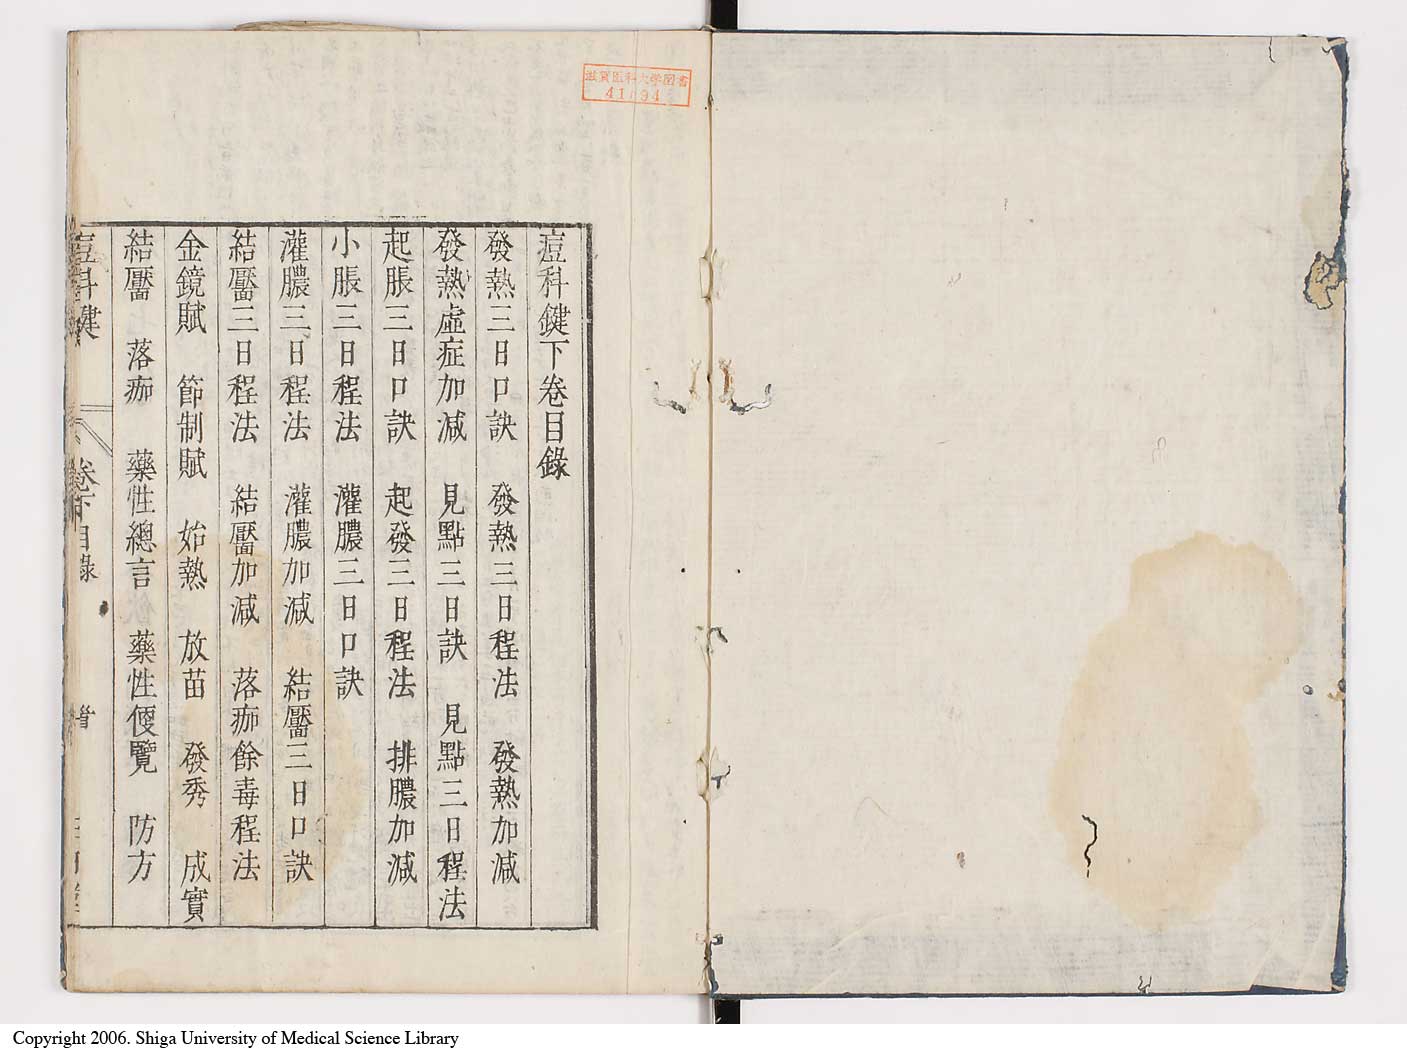 滋賀医科大学図書
痘科鍵下卷目錄
發熱三日口訣　發熱三日程法　發熱加减
發熱虛症加减　見點三日訣　見點三日程法
起脹三日口訣　起發三日程法　排膿加减
小脹三日程法　灌膿三日口訣
灌膿三日程法　灌膿加减　結靨三日口訣
結靨三日程法　結靨加减　落痂餘毒程法
金鏡賦　節制賦　始熱　放苗　發秀　成實
結靨　落痂　藥性總言　藥性便覽　防方
痘科鍵　卷下目錄
Copyright 2006. Shiga University of Medical Science Library